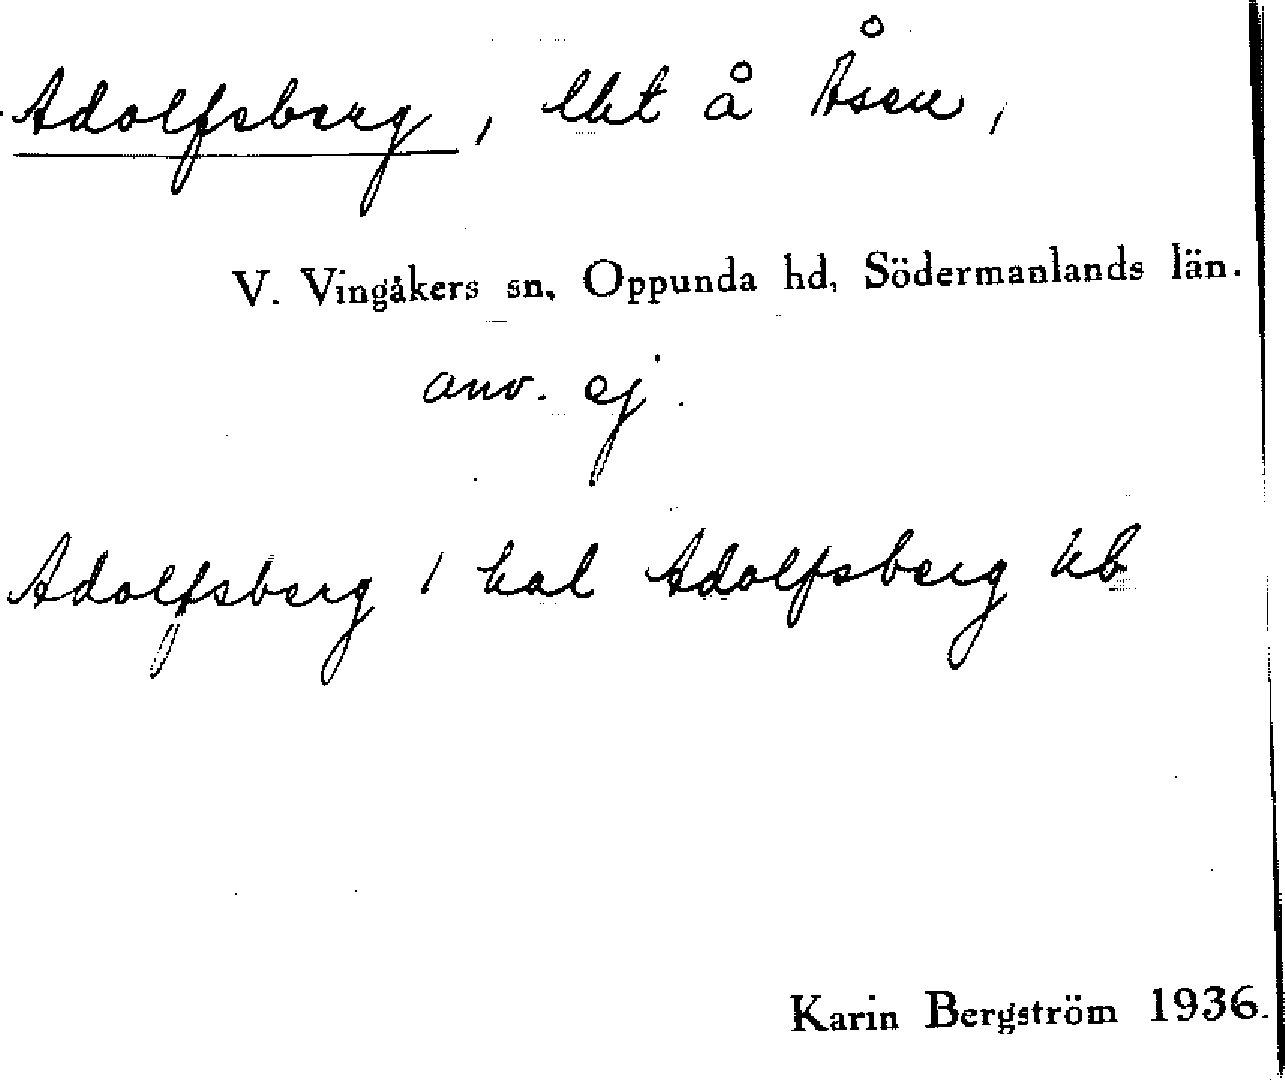 Adolfsberg, lht å Åsen,
V. Vingåkers sn, Oppunda hd, Södermanlands län.
anv. ej.
Adolfsberg / hal Adolfsberg kb
Karin Bergström 1936.